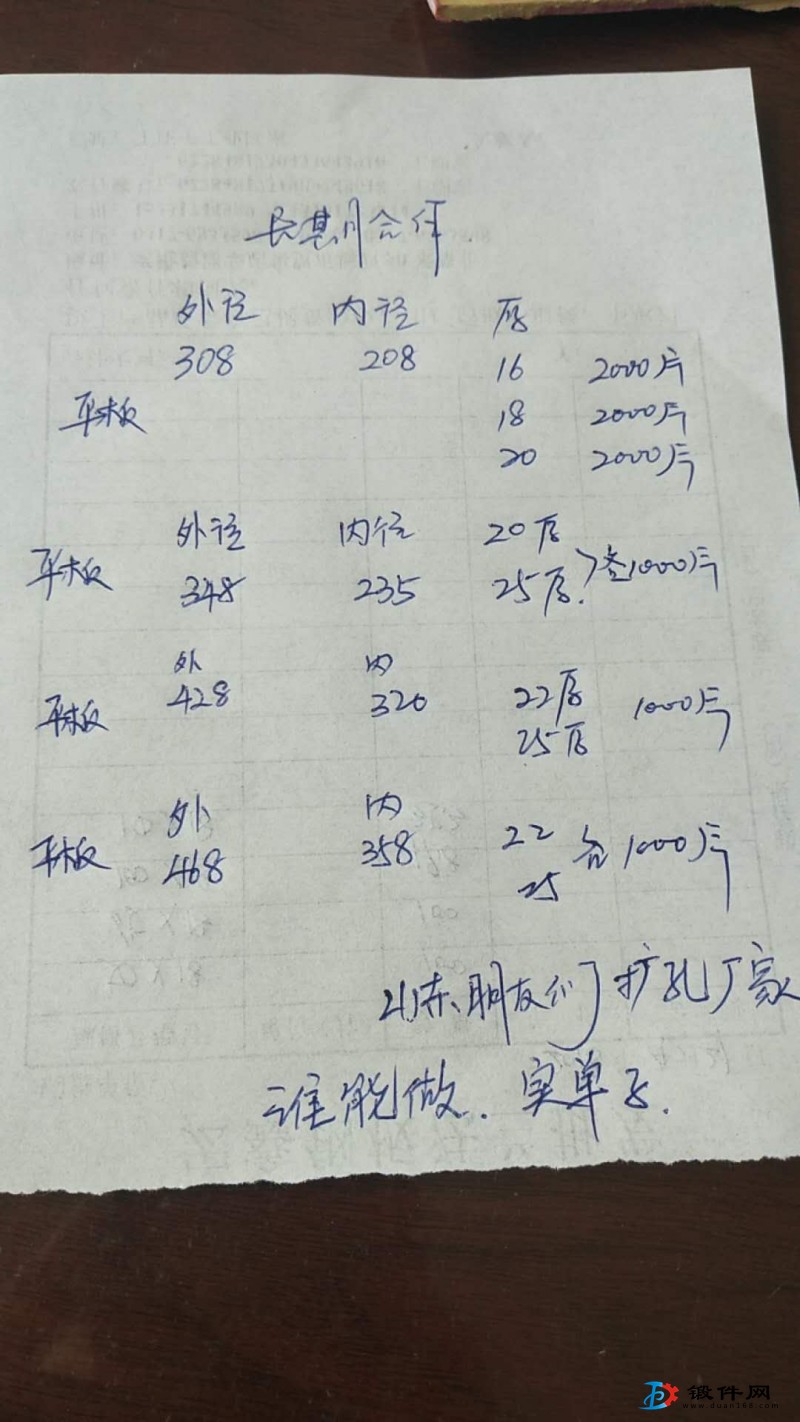 长期合作
外径 内径 厚
308 208 16 2000片
平板 18 2000片
20 2000片
外径 内径 20厚
平板 348 235 25厚 各1000片
外 内
平板 428 320 22厚 1000片
25厚
外 内
平板 468 358 22 各1000片
25
山东朋友们扩孔厂家
谁能做.实单子.
锻件网
www.duan168.com